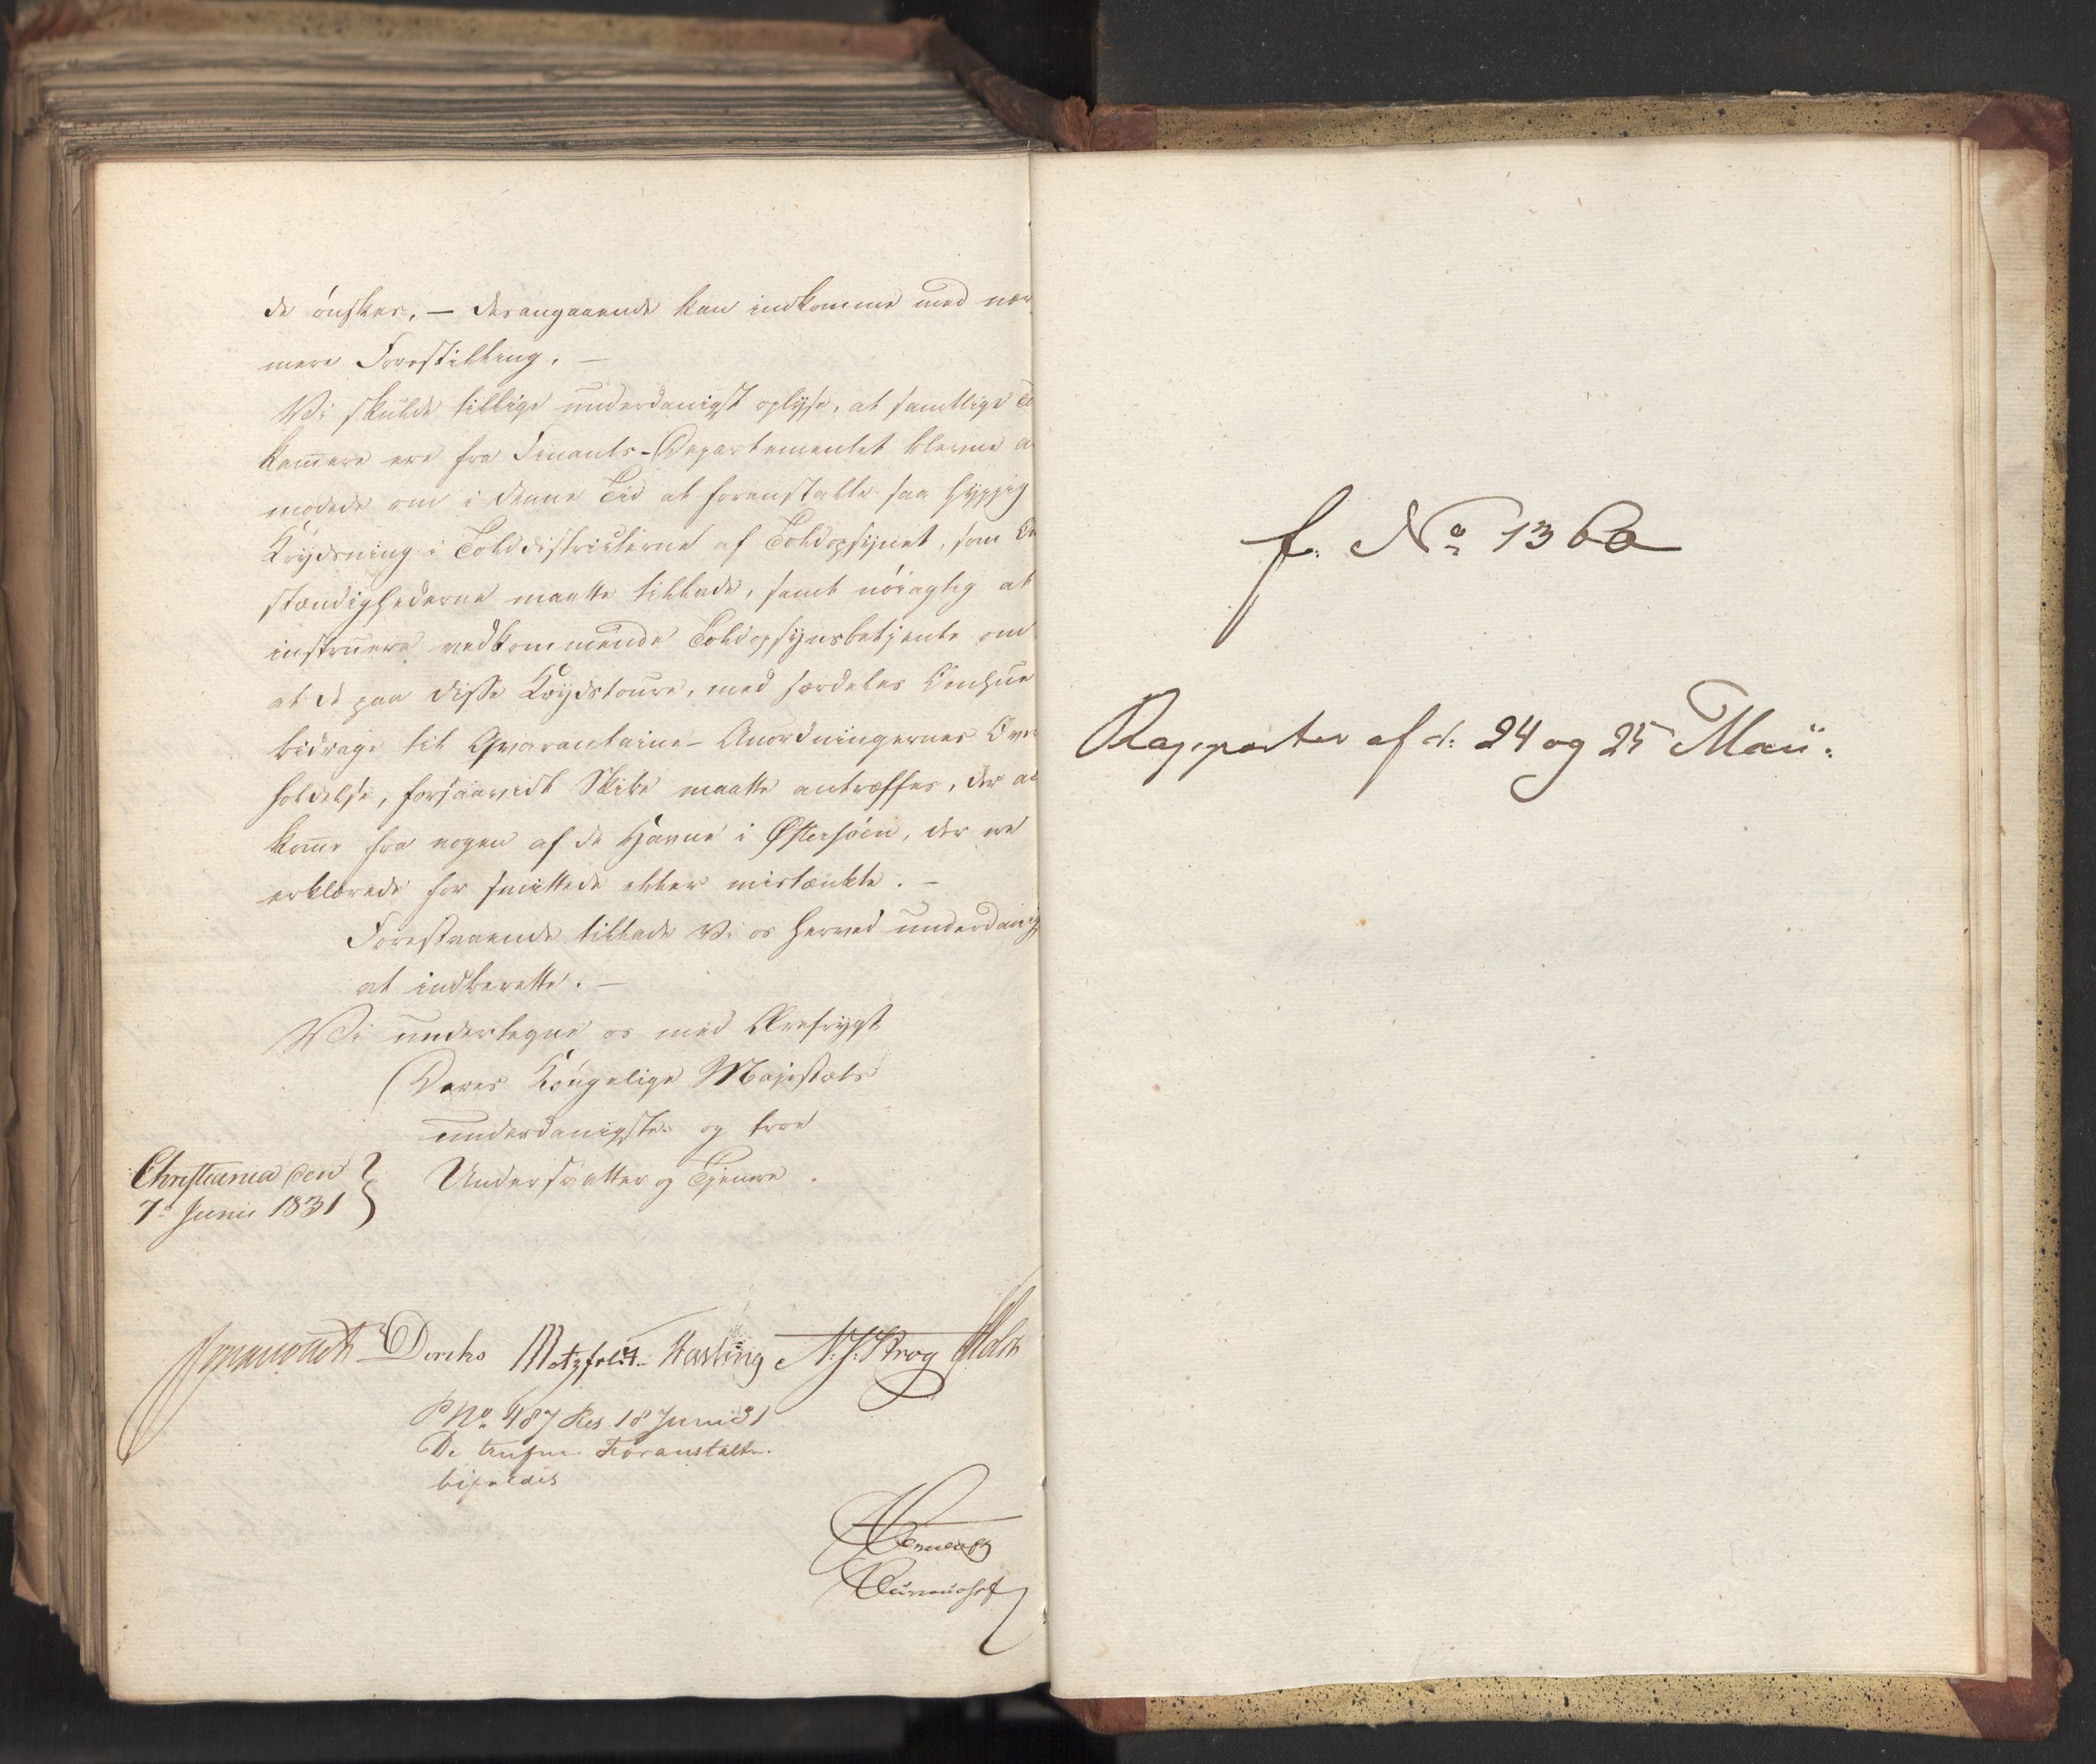 de ønsker, — desangaaende kan indkomme med nær
mere Forestilling. —
Vi skulde tillige underdanigst oplyse, at samtlige To
kam̄ere ere fra Finants-Departementet blevne a
modede om i denne Tid at foranstalte saa hyppig
Krydsning i Tolddistricterne af Toldopsynet, som Om
stændighederne maatte tillade, samt nøiagtig at
instruere vedkommende Toldopsynsbetjente om
at de paa disse Krydstoure, med særdeles Omhue
bidrage til Qvarantaine-Anordningernes Over
holdelse, forsaavidt Skibe maatte antræffes, der an
kom̄e fra nogen af de Havne i Østersøen, der ere
erklærede for smittede eller mistænkte. —
Forestaaende tillade Vi os herved underdanigst
at indberette. —
Vi undertegne os med Ærefrygt
Deres Kongelige Majestæts
underdanigste og troe
Undersaatter og Tjenere.
Christiania den
7de Junii 1831
Diriks Motzfeldt Fasting N. J. Krog Holst
P No. 487 Res. 18 Junii 31
De trufne Foranstaltn.
bifaldes
f. No 136 a
Rapporter af d: 24 og 25 Maii.